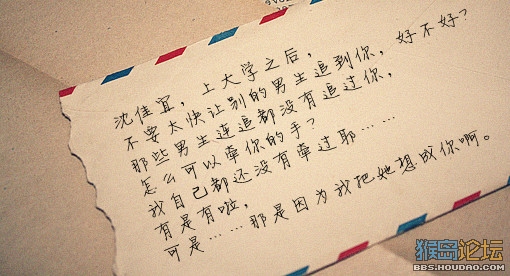 沈佳宜，上大学之后，
不要太快让别的男生追到你，好不好？
那些男生连追都没有追过你，
怎么可以牵你的手？
我自己都还没有牵过耶……
有是有啦，
可是……那是因为我把她想成你啊。
猴岛论坛
BBS.HOUDAO.COM